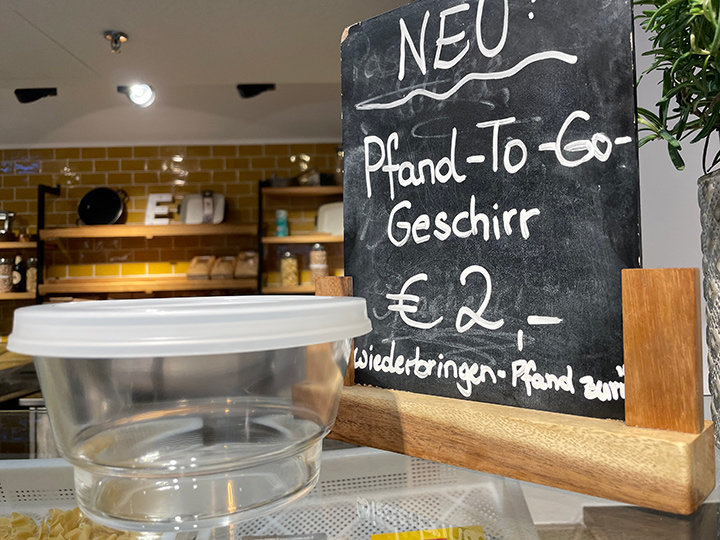 NEU!
Pfand-To-Go-
Geschirr
€ 2,-
wiederbringen-Pfand
E